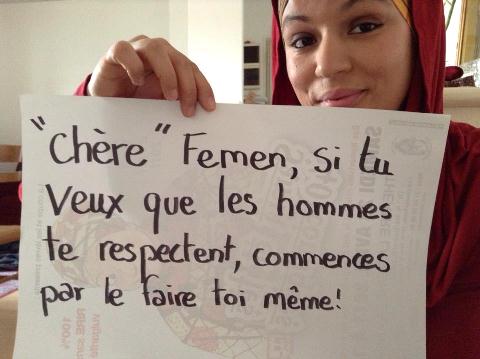 "Chère" Femen, si tu
veux que les hommes
te respectent, commences
par le faire toi même!